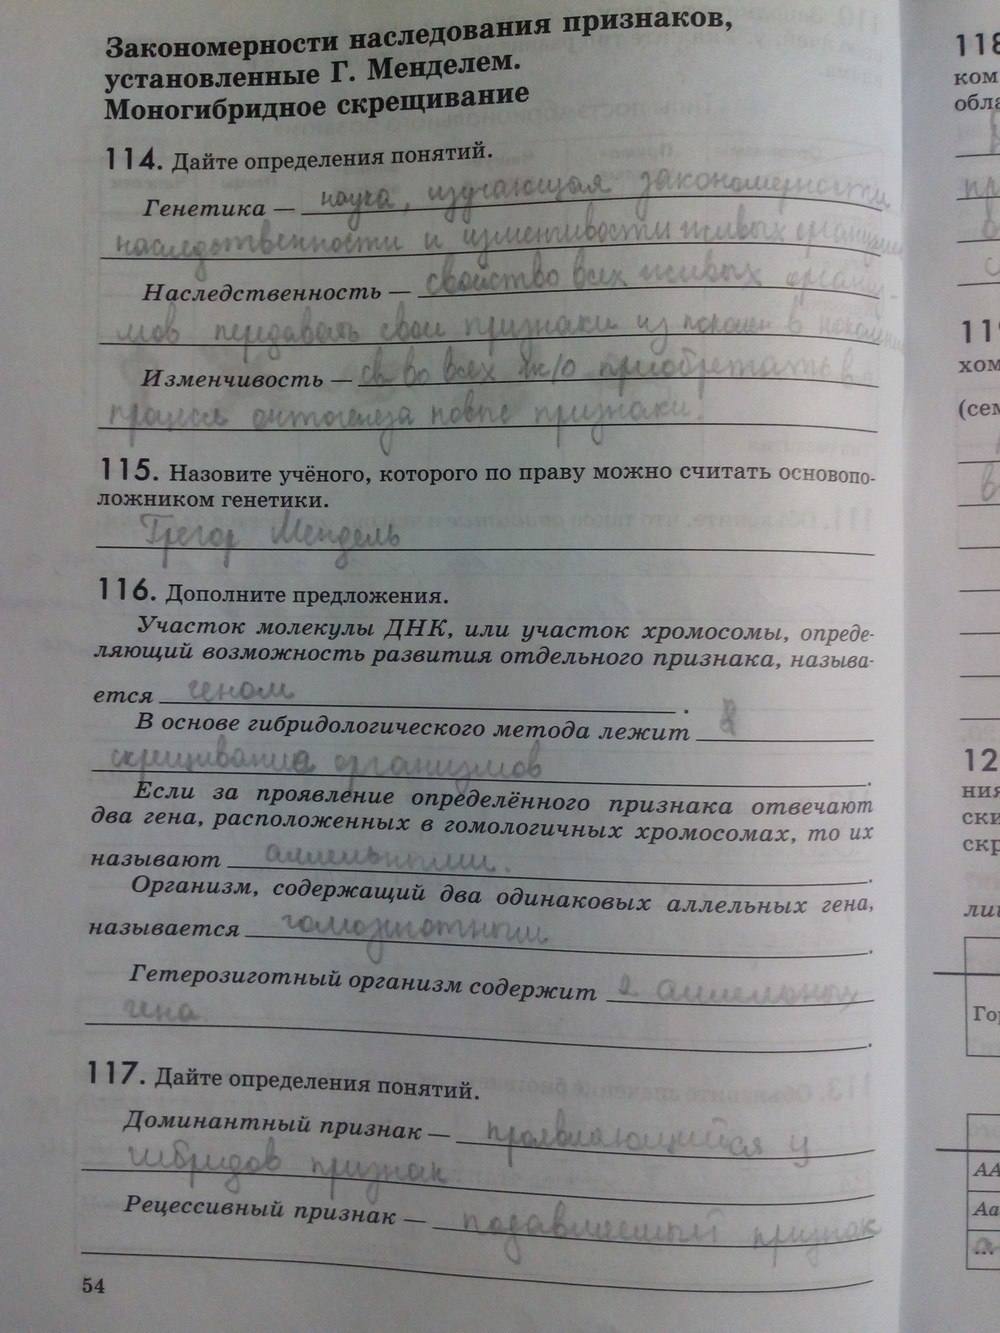 Закономерности наследования признаков,
установленные Г. Менделем.
Моногибридное скрещивание
114. Дайте определения понятий.
Генетика — наука, изучающая закономерности
наследственности и изменчивости живых организмов
Наследственность — свойство всех живых организ-
мов передавать свои признаки из покол. в поколение
Изменчивость — св-во всех ж/о приобретать в
процессе онтогенеза новые признаки.
115. Назовите учёного, которого по праву можно считать основопо-
ложником генетики.
Грегор Мендель
116. Дополните предложения.
Участок молекулы ДНК, или участок хромосомы, опреде-
ляющий возможность развития отдельного признака, называ-
ется геном.
В основе гибридологического метода лежит
скрещивание организмов.
Если за проявление определённого признака отвечают
два гена, расположенных в гомологичных хромосомах, то их
называют аллельными.
Организм, содержащий два одинаковых аллельных гена,
называется гомозиготным.
Гетерозиготный организм содержит 2 аллельных
гена.
117. Дайте определения понятий.
Доминантный признак — проявляющийся у
гибридов признак
Рецессивный признак — подавляемый признак
54
118
ком
обла
119
хом
(сем
в
12
ния
ски
скр
лиш
Гор
АА
Аа
...